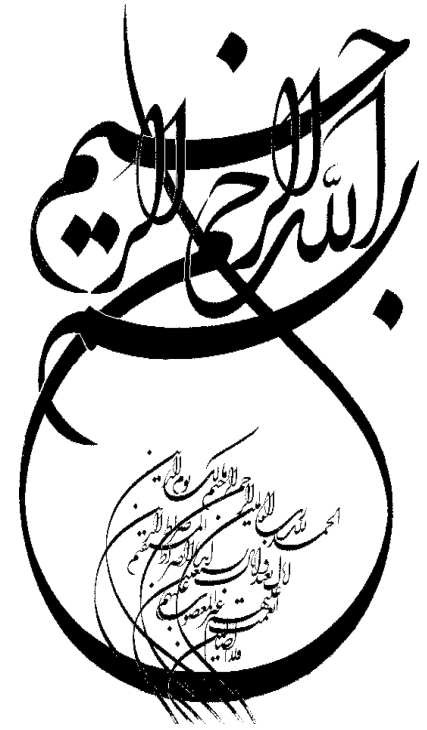 بسم الله الرحمن الرحيم
الحمد لله رب العالمين الرحمن الرحيم مالك يوم الدين
اياك نعبد و اياك نستعين اهدنا الصراط المستقيم
صراط الذين انعمت عليهم
غير المغضوب عليهم
ولا الضالين